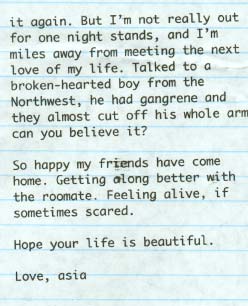 it again. But I'm not really out
for one night stands, and I'm
miles away from meeting the next
love of my life. Talked to a
broken-hearted boy from the
Northwest, he had gangrene and
they almost cut off his whole arm
can you believe it?
So happy my friends have come
home. Getting along better with
the roomate. Feeling alive, if
sometimes scared.
Hope your life is beautiful.
Love, asia